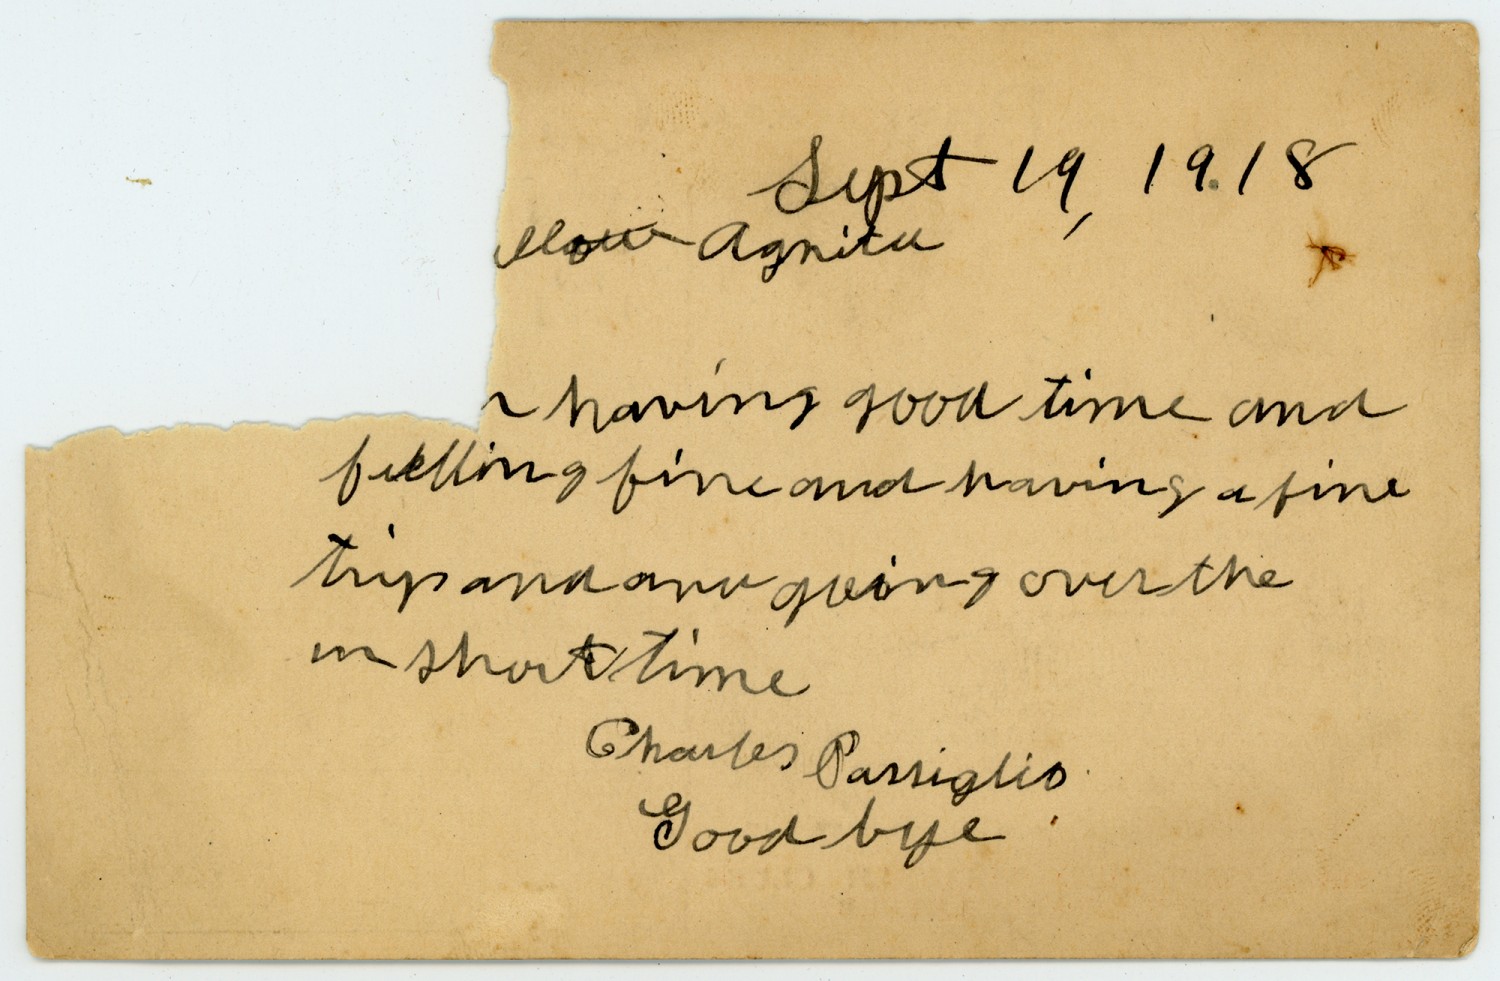 Sept 19, 1918
ellow Agnita
having good time and
feelling fine and having a fine
trip and am going over the
in short time
Charles Passiglio
Good bye